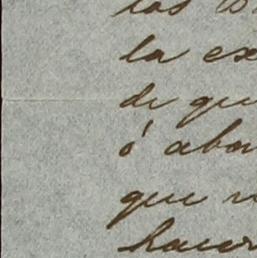 los
la ex
de que
ó abor
que
hacer